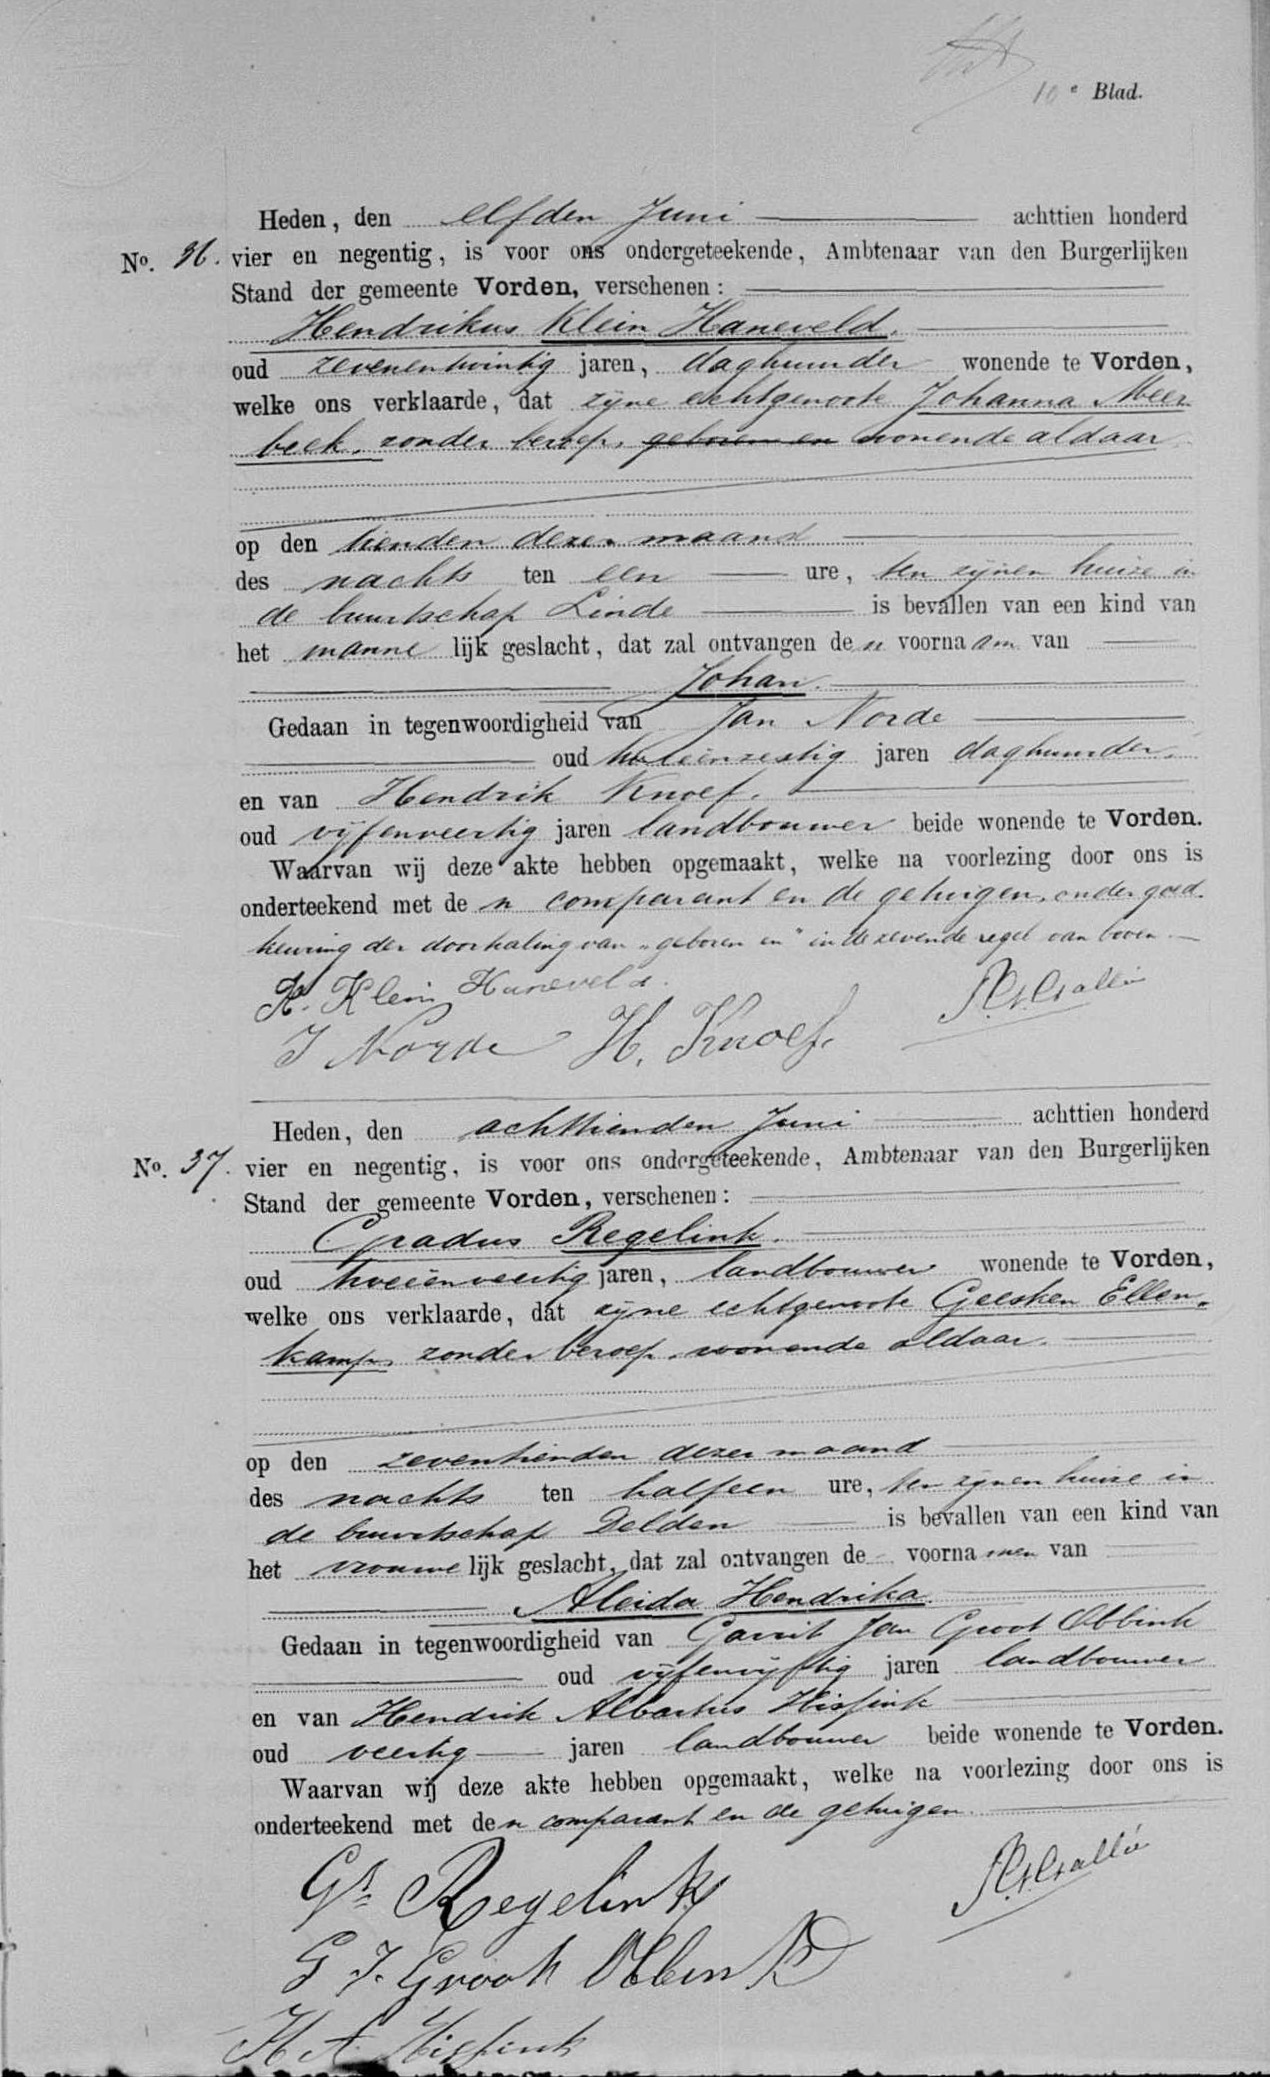 10e Blad.
Heden, den elfden Juni achttien honderd
No. 36. vier en negentig, is voor ons ondergeteekende, Ambtenaar van den Burgerlijken
Stand der gemeente Vorden, verschenen:
Hendrikus Klein Haneveld.
oud zevenentwintig jaren, daghuurder wonende te Vorden,
welke ons verklaarde, dat zijne echtgenoote Johanna Meer
beek, zonder beroep, geboren en wonende aldaar
op den tienden dezer maand
des nachts ten een ure, ten zijnen huize in
de buurtschap Linde is bevallen van een kind van
het manne lijk geslacht, dat zal ontvangen de n voorna am van
Johan.
Gedaan in tegenwoordigheid van Jan Norde
oud tweeënzestig jaren daghuurder,
en van Hendrik Knoef.
oud vijfenveertig jaren landbouwer beide wonende te Vorden.
Waarvan wij deze akte hebben opgemaakt, welke na voorlezing door ons is
onderteekend met de n comparant en de getuigen, onder goed
keuring der doorhaling van „geboren en" in de zevende regel van boven.
H. Klein Haneveld.
J Norde H. Knoef.
Gallée
Heden, den achttienden Juni achttien honderd
No. 37. vier en negentig, is voor ons ondergeteekende, Ambtenaar van den Burgerlijken
Stand der gemeente Vorden, verschenen:
Gradus Regelink.
oud tweeënveertig jaren, landbouwer wonende te Vorden,
welke ons verklaarde, dat zijne echtgenoote Geesken Ellen-
kamp, zonder beroep, wonende aldaar.
op den zeventienden dezer maand
des nachts ten halfeen ure, ten zijnen huize in
de buurtschap Delden is bevallen van een kind van
het vrouwe lijk geslacht, dat zal ontvangen de voorna men van
Aleida Hendrika.
Gedaan in tegenwoordigheid van Garrit Jan Groot Obbink
oud vijfenvijftig jaren landbouwer
en van Hendrik Albartus Hissink
oud veertig jaren landbouwer beide wonende te Vorden.
Waarvan wij deze akte hebben opgemaakt, welke na voorlezing door ons is
onderteekend met de n comparant en de getuigen.
Gs. Regelink
Gallée
G J. Groot Obbink
H A Hissink